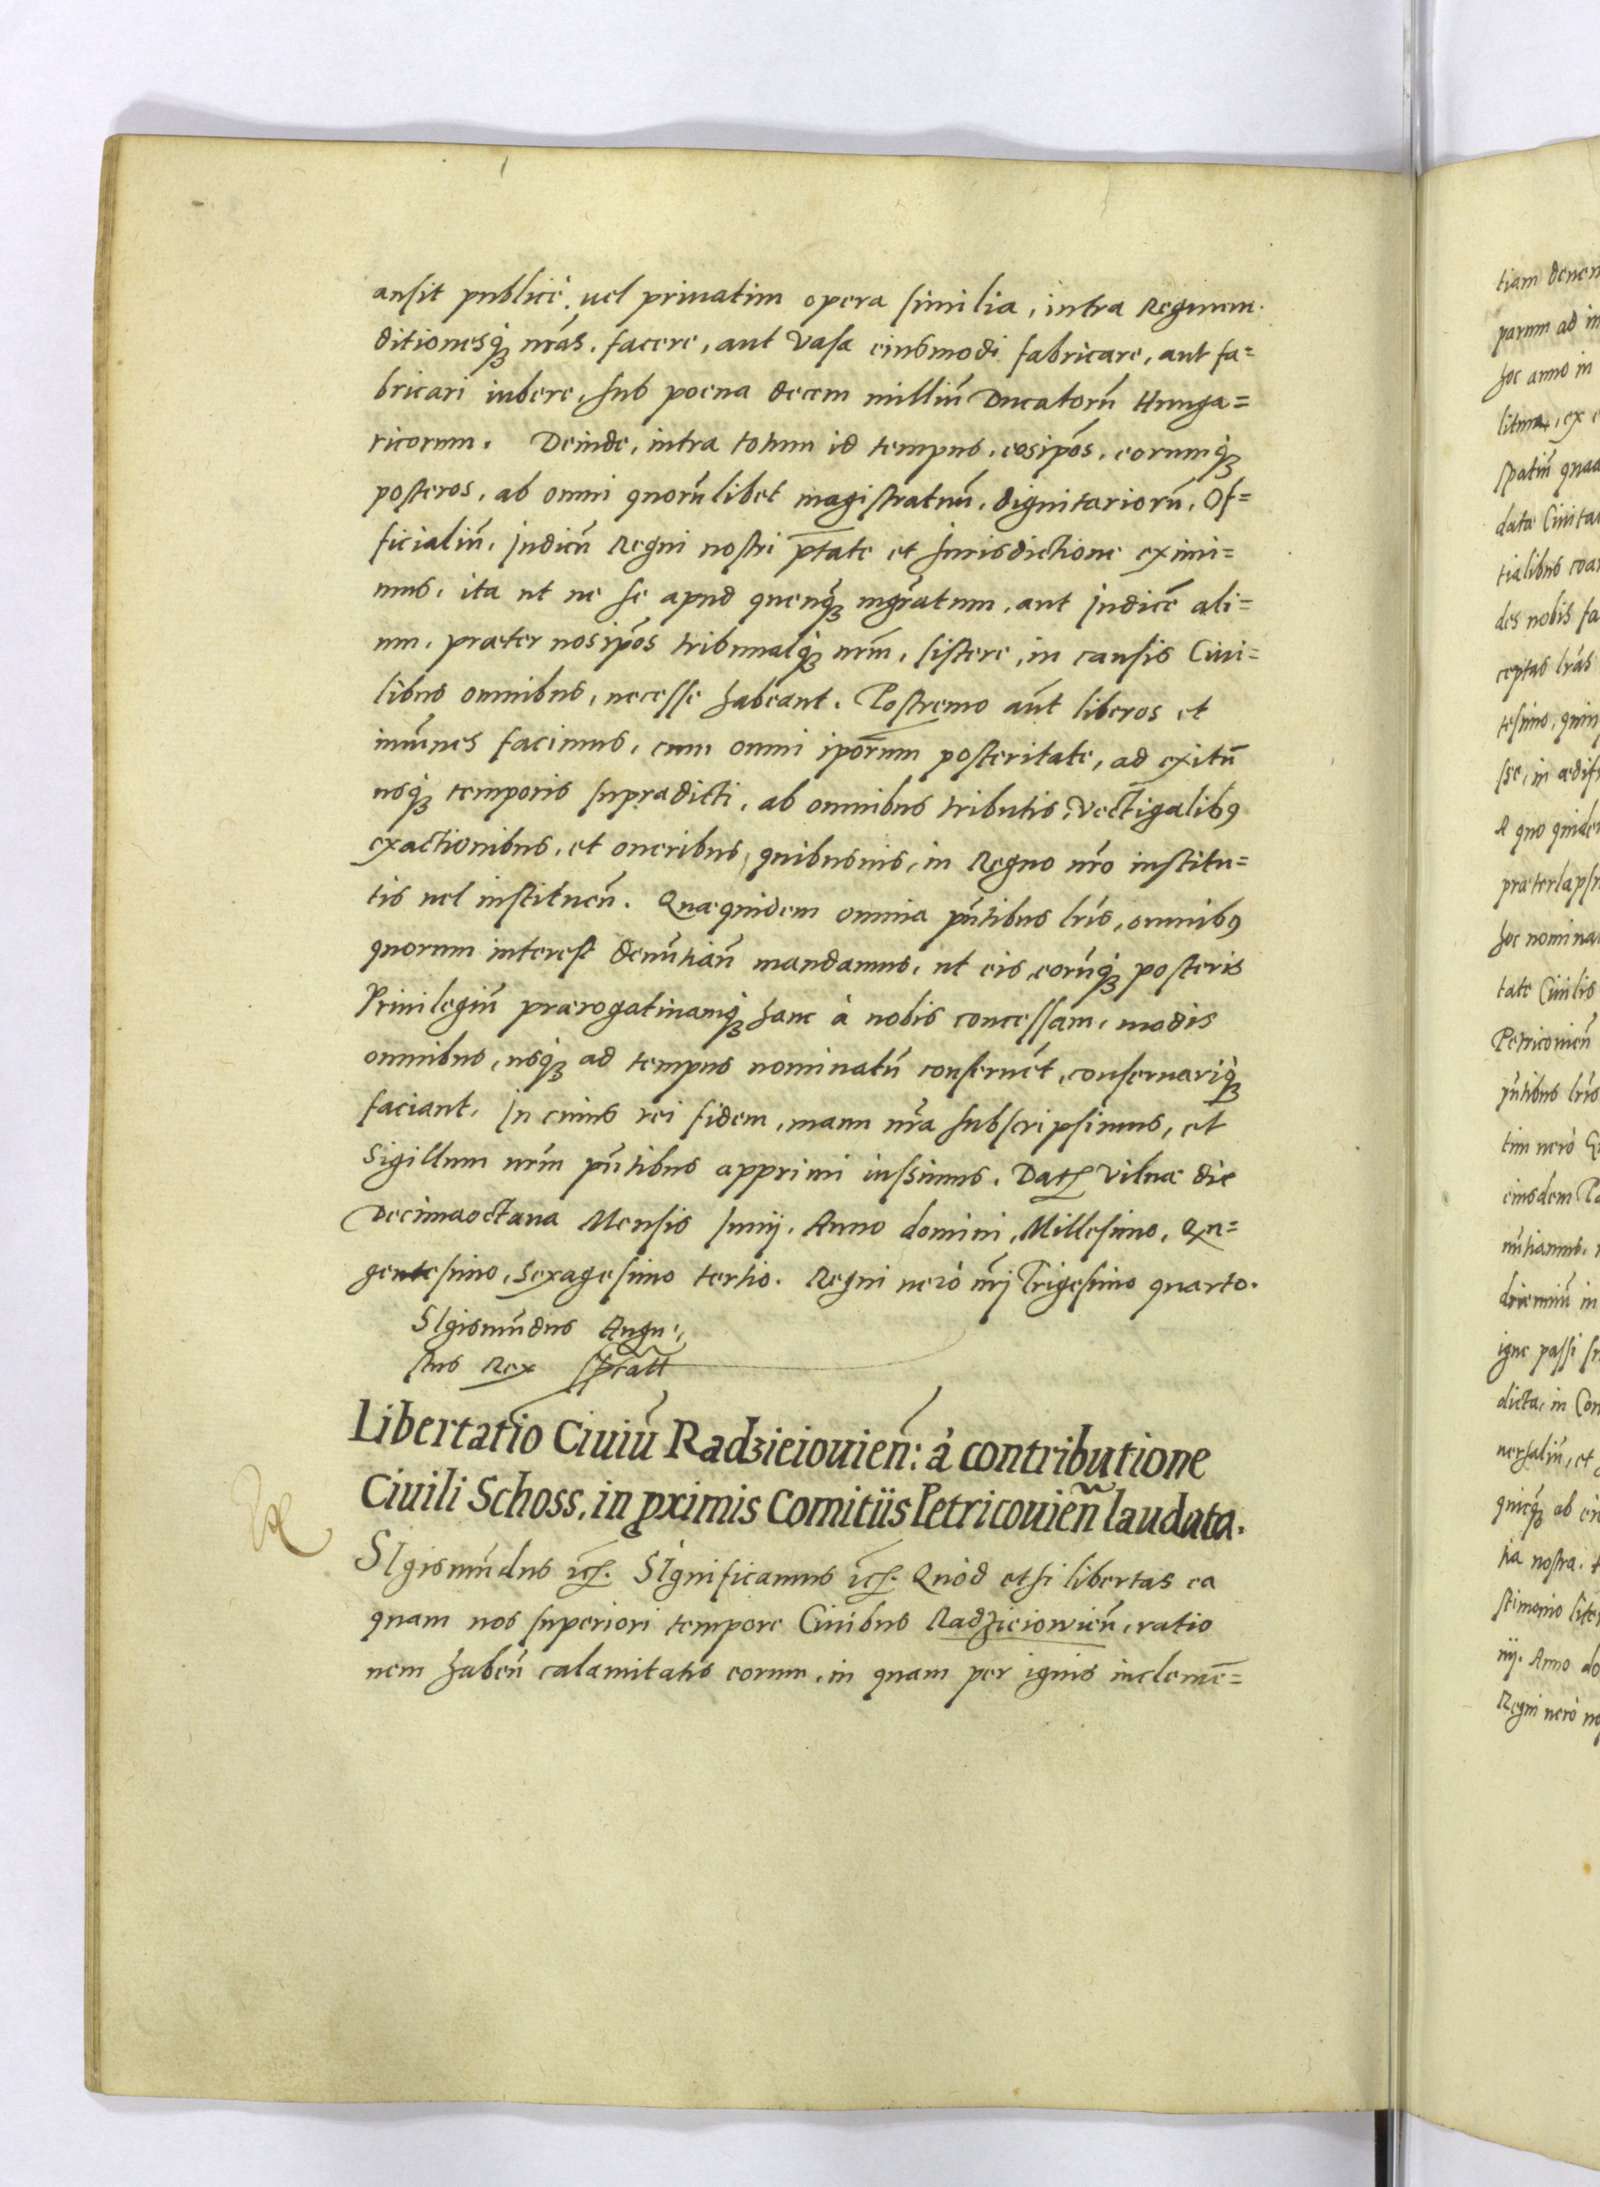 ausit publicè, uel priuatim opera similia, intra Regnum
ditionesq́ȝ nr̃as, facere, aut vasa eiusmodi fabricare, aut fa=
bricari iubere, sub poena decem milliũ Ducatorũ Hunga=
ricorum. Deinde, intra totum id tempus, eosip̃os, eorumq́ȝ
posteros, ab omni quorũlibet magistratuũ, dignitariorũ, Of=
ficialiũ, Iudicũ Regni nostri p̃tate et Iurisdictione eximi=
mus, ita ut ne se apud quenq́ȝ mg̃ratum, aut Iudicẽ ali=
um, præter nosip̃os tribunalq́ȝ nrm̃, sistere, in causis Ciui=
libus omnibus, necesse habeant. Postremo aũt liberos et
imũnes facimus, cum omni ipõrum posteritate, ad exitũ
usq́ȝ temporis supradicti, ab omnibus tributis, vectigalibꝰ
exactionibus, et oneribus, quibusuis, in Regno nr̃o institu=
tis uel instituen̄. Quæquidem omnia pñtibus lr̃is, omnibꝰ
quorum interest denũtian̄ mandamus, ut eis eorũq́ȝ posteris
Priuilegiũ prærogatiuamq́ȝ hanc à nobis concessam, modis
omnibus, usq́ȝ ad tempus nominatũ conseruẽt, conseruariq́ȝ
faciant. In cuius rei fidem, manu nr̃a subscripsimus, et
Sigillum nrm̃ pñtibus apprimi iussimus. Datꝭ Vilnæ die
Decimaoctaua Mensis Iunij. Anno domini, Millesimo, Qn=
gentesimo, Sexagesimo tertio. Regni uerò nr̃j Trigesimo quarto.
SIgismũdus Augu=
stus Rex sp̃catt
Libertatio Ciuiũ Radzieiouien̄: à contributione
Ciuili Schoss, in ꝓximis Comitiis Petricouien̄ laudata.
SIgismũdus ꝛcꝭ. SIgnificamus ꝛcꝭ. Quòd etsi libertas ea
quam nos superiori tempore Ciuibus Radzieiowien̄, ratio
nem haben̄ calamitatis eorum, in quam per ignis inclemẽ=
tiam deuen
parum ad in
hoc anno in
spatiũ quad
data Ciuita
tialibus
des nobis fa
ceptas lr̃as
tesimo, quin
sse, in ædifi
A quo quidem
præterlapsu
hoc nomina
tate Ciuilis
Petricouien̄
pñtibus lr̃is
tim uerò
eiusdem
igne passi
dicta, in Con
uersaliũ, et
quicq́ȝ ab
tia nostra.
stimonio liter
iij. Anno do
Regni uerò no